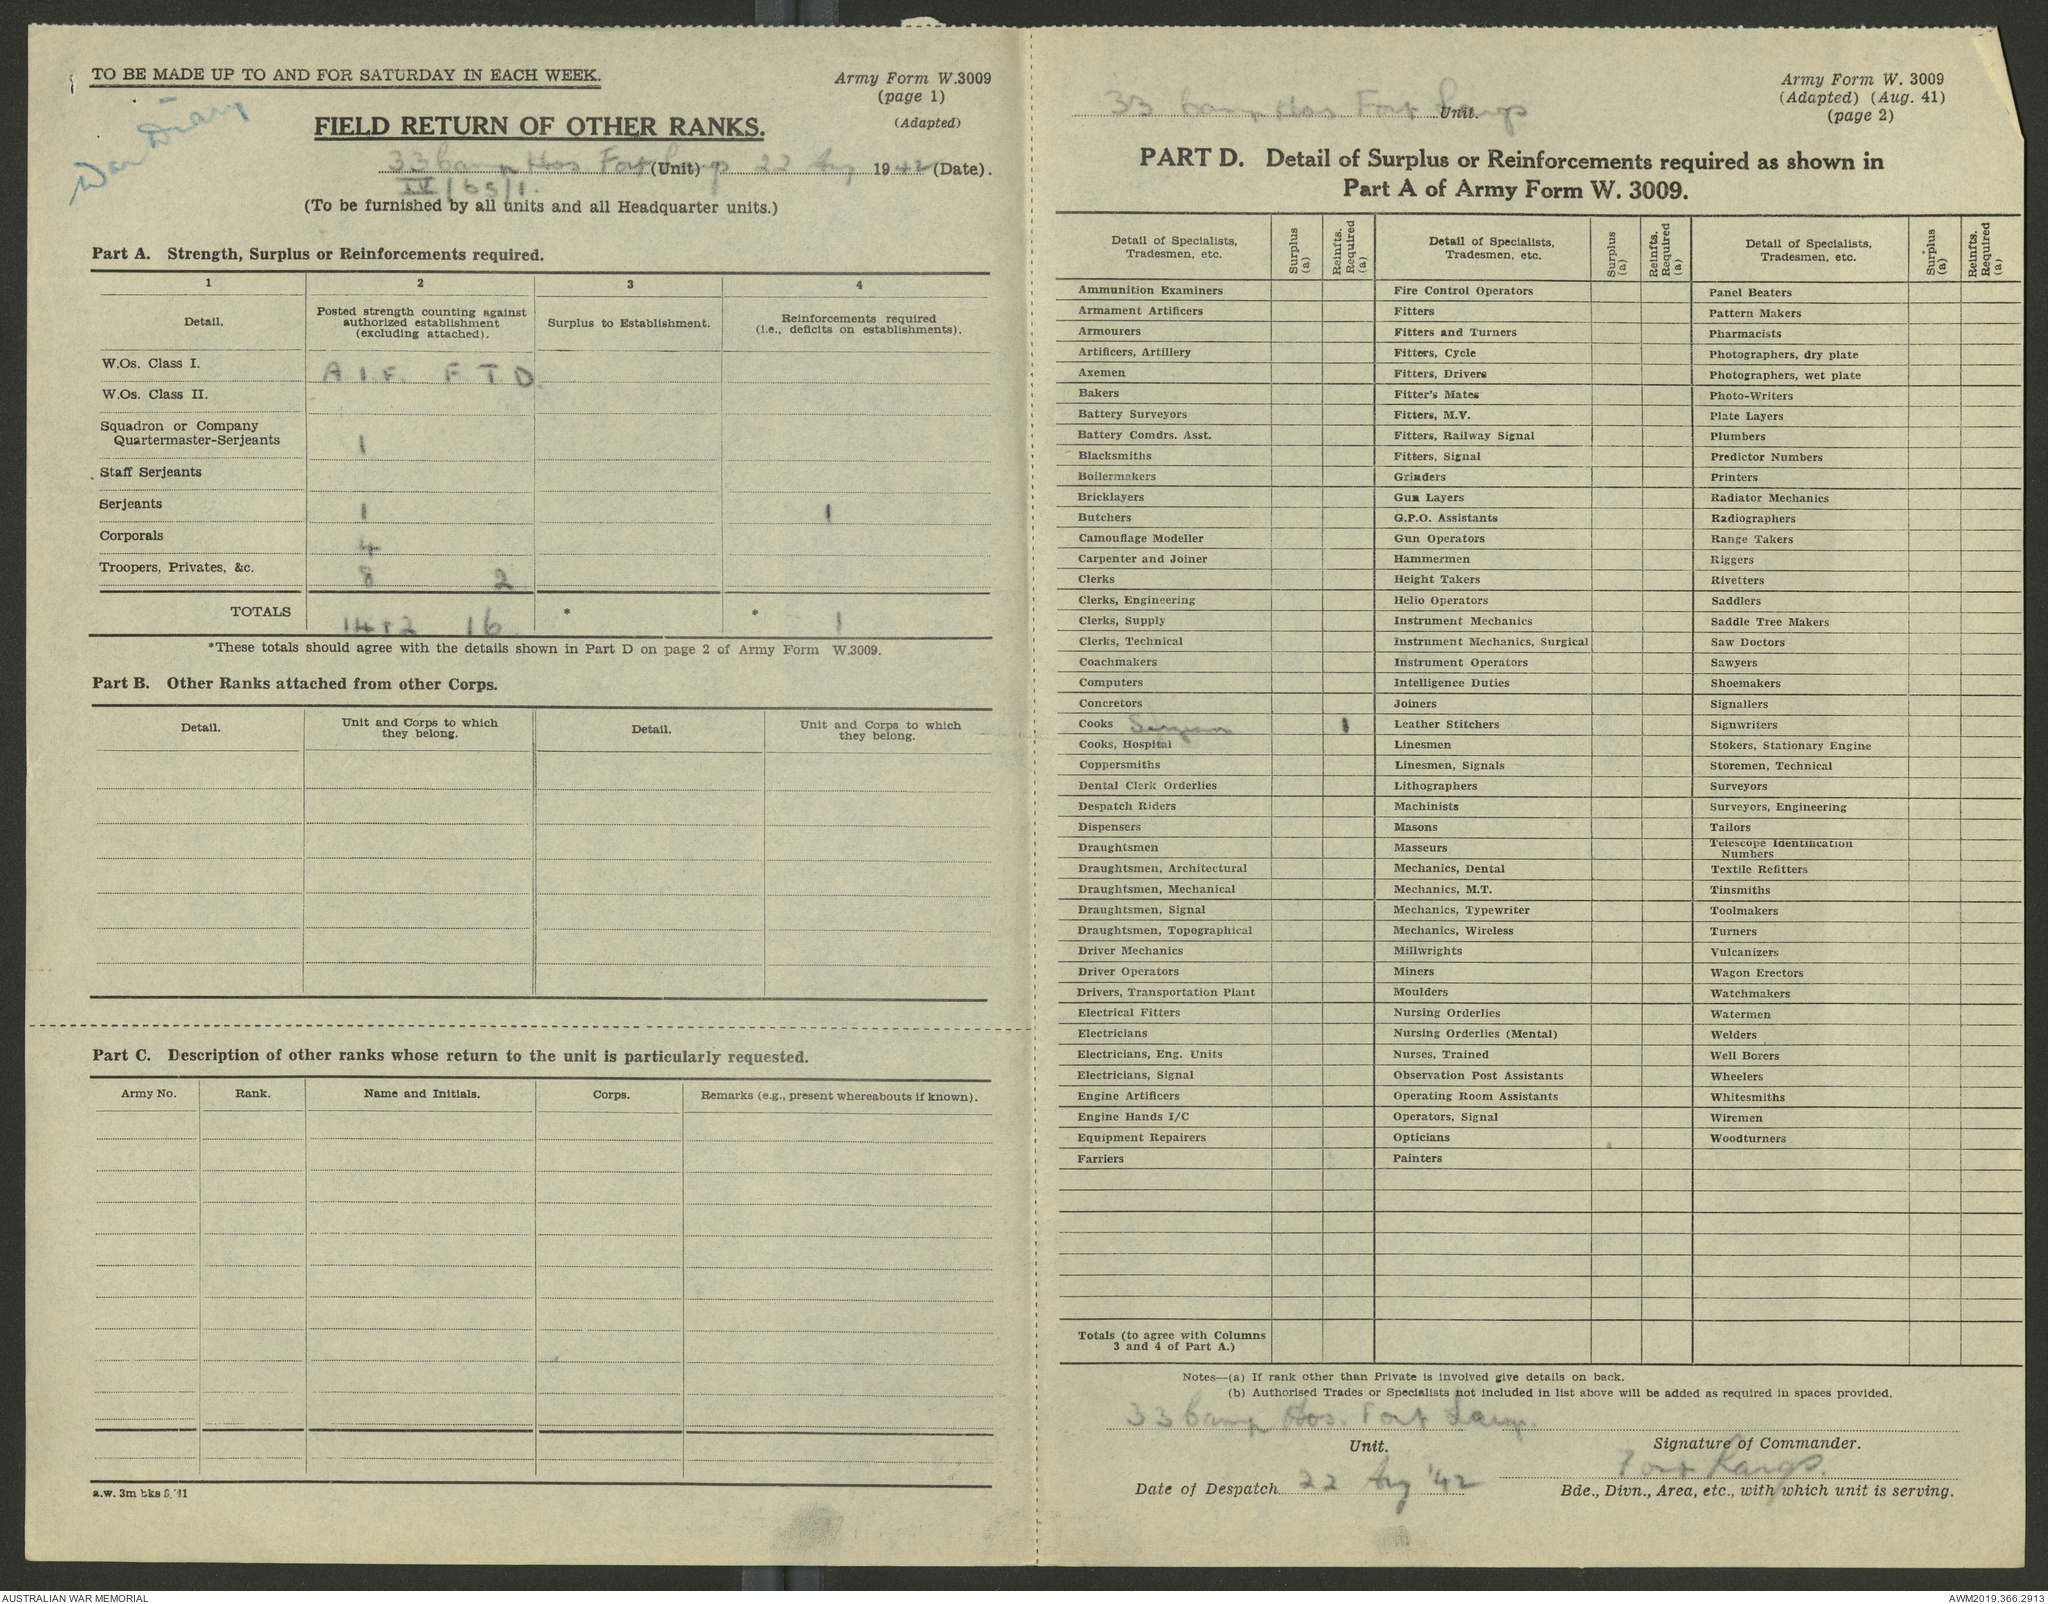 TO BE MADE UP TO AND FOR SATURDAY IN EACH WEEK.
Army Form W.3009
(page 1)
(Adapted)
War Diary
FIELD RETURN OF OTHER RANKS.
33 Camp Hos Fort Largs (Unit) 22 Aug 1942 (Date).
IV/65/1.
(To be furnished by all units and all Headquarter units.)
Part A. Strength, Surplus or Reinforcements required.
1 2 3 4
Detail. Posted strength counting against authorized establishment (excluding attached). Surplus to Establishment. Reinforcements required (i.e., deficits on establishments).
W.Os. Class I. A.I.F. F T D.
W.Os. Class II.
Squadron or Company
Quartermaster-Serjeants 1
Staff Serjeants
Serjeants 1 1
Corporals 4
Troopers, Privates, &c. 8 2
TOTALS 14 + 2 16 * * 1
*These totals should agree with the details shown in Part D on page 2 of Army Form W.3009.
Part B. Other Ranks attached from other Corps.
Detail. Unit and Corps to which they belong. Detail. Unit and Corps to which they belong.
Part C. Description of other ranks whose return to the unit is particularly requested.
Army No. Rank. Name and Initials. Corps. Remarks (e.g., present whereabouts if known).
a.w. 3m bks 8/41
33 Camp Hos Fort Largs Unit.
Army Form W. 3009
(Adapted) (Aug. 41)
(page 2)
PART D. Detail of Surplus or Reinforcements required as shown in
Part A of Army Form W. 3009.
Detail of Specialists, Tradesmen, etc. Surplus (a) Reinfts. Required (a) Detail of Specialists, Tradesmen, etc. Surplus (a) Reinfts. Required (a) Detail of Specialists, Tradesmen, etc. Surplus (a) Reinfts. Required (a)
Ammunition Examiners Fire Control Operators Panel Beaters
Armament Artificers Fitters Pattern Makers
Armourers Fitters and Turners Pharmacists
Artificers, Artillery Fitters, Cycle Photographers, dry plate
Axemen Fitters, Drivers Photographers, wet plate
Bakers Fitter's Mates Photo-Writers
Battery Surveyors Fitters, M.V. Plate Layers
Battery Comdrs. Asst. Fitters, Railway Signal Plumbers
Blacksmiths Fitters, Signal Predictor Numbers
Boilermakers Grinders Printers
Bricklayers Gun Layers Radiator Mechanics
Butchers G.P.O. Assistants Radiographers
Camouflage Modeller Gun Operators Range Takers
Carpenter and Joiner Hammermen Riggers
Clerks Height Takers Rivetters
Clerks, Engineering Helio Operators Saddlers
Clerks, Supply Instrument Mechanics Saddle Tree Makers
Clerks, Technical Instrument Mechanics, Surgical Saw Doctors
Coachmakers Instrument Operators Sawyers
Computers Intelligence Duties Shoemakers
Concretors Joiners Signallers
Cooks 1 Leather Stitchers Signwriters
Cooks, Hospital Linesmen Stokers, Stationary Engine
Coppersmiths Linesmen, Signals Storemen, Technical
Dental Clerk Orderlies Lithographers Surveyors
Despatch Riders Machinists Surveyors, Engineering
Dispensers Masons Tailors
Draughtsmen Masseurs Telescope Identification Numbers
Draughtsmen, Architectural Mechanics, Dental Textile Refitters
Draughtsmen, Mechanical Mechanics, M.T. Tinsmiths
Draughtsmen, Signal Mechanics, Typewriter Toolmakers
Draughtsmen, Topographical Mechanics, Wireless Turners
Driver Mechanics Millwrights Vulcanizers
Driver Operators Miners Wagon Erectors
Drivers, Transportation Plant Moulders Watchmakers
Electrical Fitters Nursing Orderlies Watermen
Electricians Nursing Orderlies (Mental) Welders
Electricians, Eng. Units Nurses, Trained Well Borers
Electricians, Signal Observation Post Assistants Wheelers
Engine Artificers Operating Room Assistants Whitesmiths
Engine Hands I/C Operators, Signal Wiremen
Equipment Repairers Opticians Woodturners
Farriers Painters
Totals (to agree with Columns
3 and 4 of Part A.)
Notes—(a) If rank other than Private is involved give details on back.
(b) Authorised Trades or Specialists not included in list above will be added as required in spaces provided.
33 Camp Hos. Fort Largs.
Unit. Signature of Commander.
Fort Largs.
Date of Despatch 22 Aug '42 Bde., Divn., Area, etc., with which unit is serving.
AUSTRALIAN WAR MEMORIAL AWM2019.366.2913